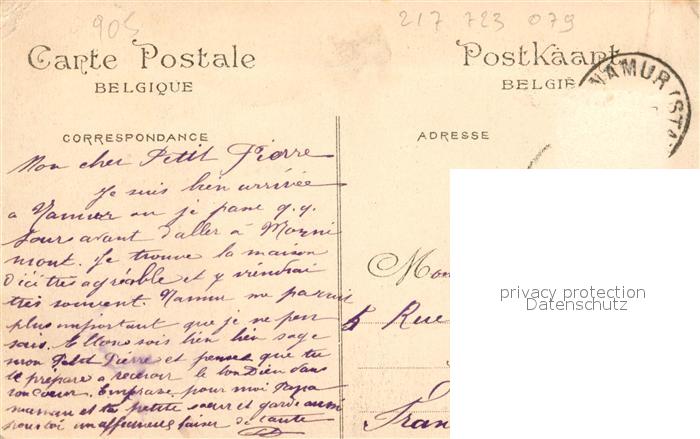 905
217 723 079
Carte Postale
BELGIQUE
PostKaart
BELGIË
NAMUR (STA
CORRESPONDANCE
ADRESSE
Mon cher Petit Pierre
Je suis bien arrivée
a Namur ou je passe q.q.
jours avant d'aller à
mont. Je trouve la maison
d'ici très agréable et y viendrai
très souvent. Namur me parait
plus important que je ne pen
sais. Et toi sois bien bien sage
mon Petit Pierre et pense que tu
te prépare a recevoir le bon Dieu dans
ton coeur. Embrasse pour moi Papa
maman et ta petite soeur et garde aussi
pour toi un affectueux baiser de tante
Mon
5 Rue
Fran
privacy protection
Datenschutz